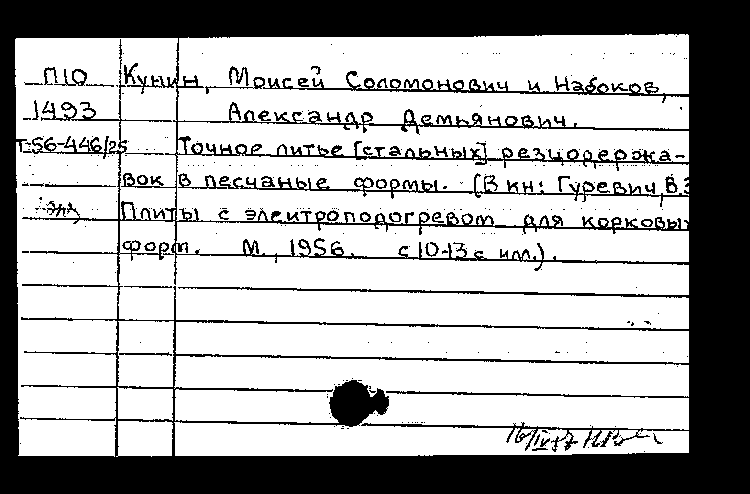 П10 Кунин, Моисей Соломонович и Набоков,
1493 Александр Демьянович.
Т-56-446/25 Точное литье [стальных] резцодержа-
вок в песчаные формы. (В кн: Гуревич, В.З
Плиты с электроподогревом для корковых
форм. М., 1956. с 10-13 с илл.).
16/IV 57